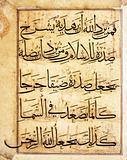 فمن يرد الله أن يهديه يشرح
صدره للإسلام ومن يرد أن يضله
يجعل صدره ضيقا حرجا
كأنما يصعد في السماء
كذلك يجعل الله الرجس